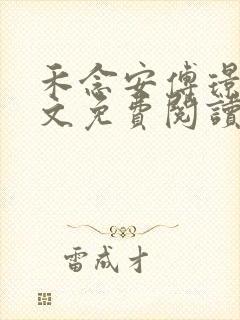 禾念安傅璟
文免費閱讀
雷成才